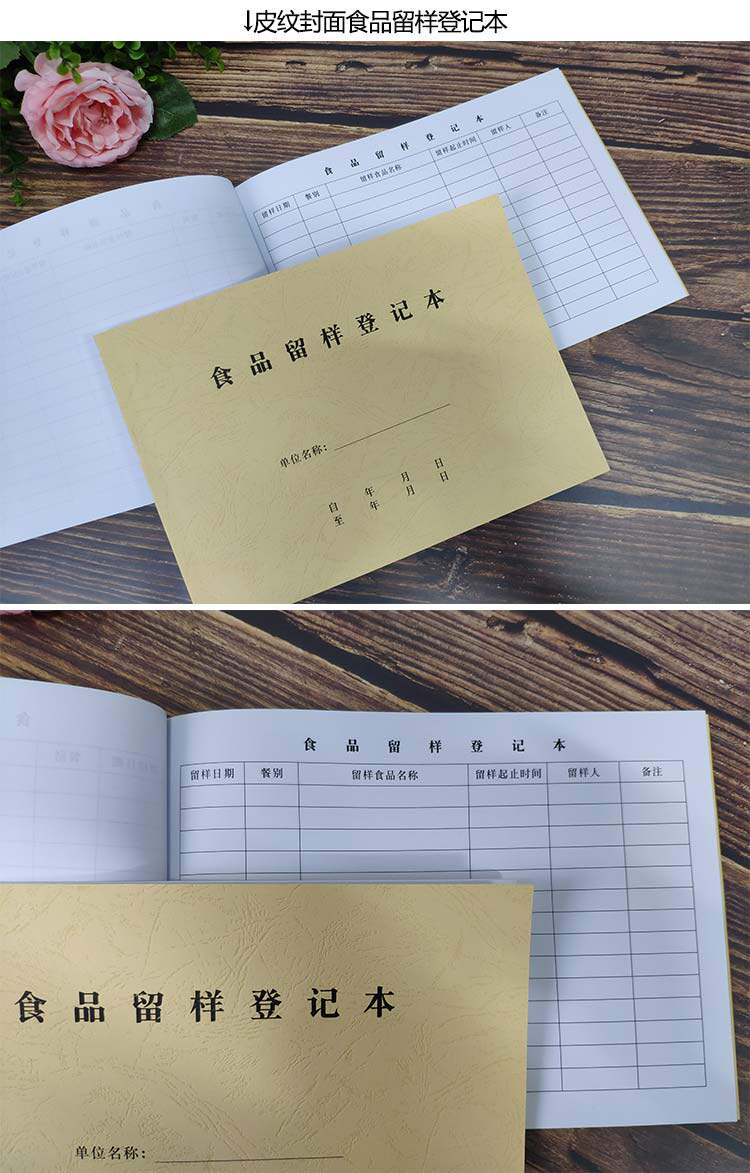 ↓皮纹封面食品留样登记本
食品留样登记本
留样日期 餐别 留样食品名称 留样起止时间 留样人 备注
食品留样登记本
单位名称：
自 年 月 日
至 年 月 日
食品留样登记本
留样日期 餐别 留样食品名称 留样起止时间 留样人 备注
食品留样登记本
单位名称：